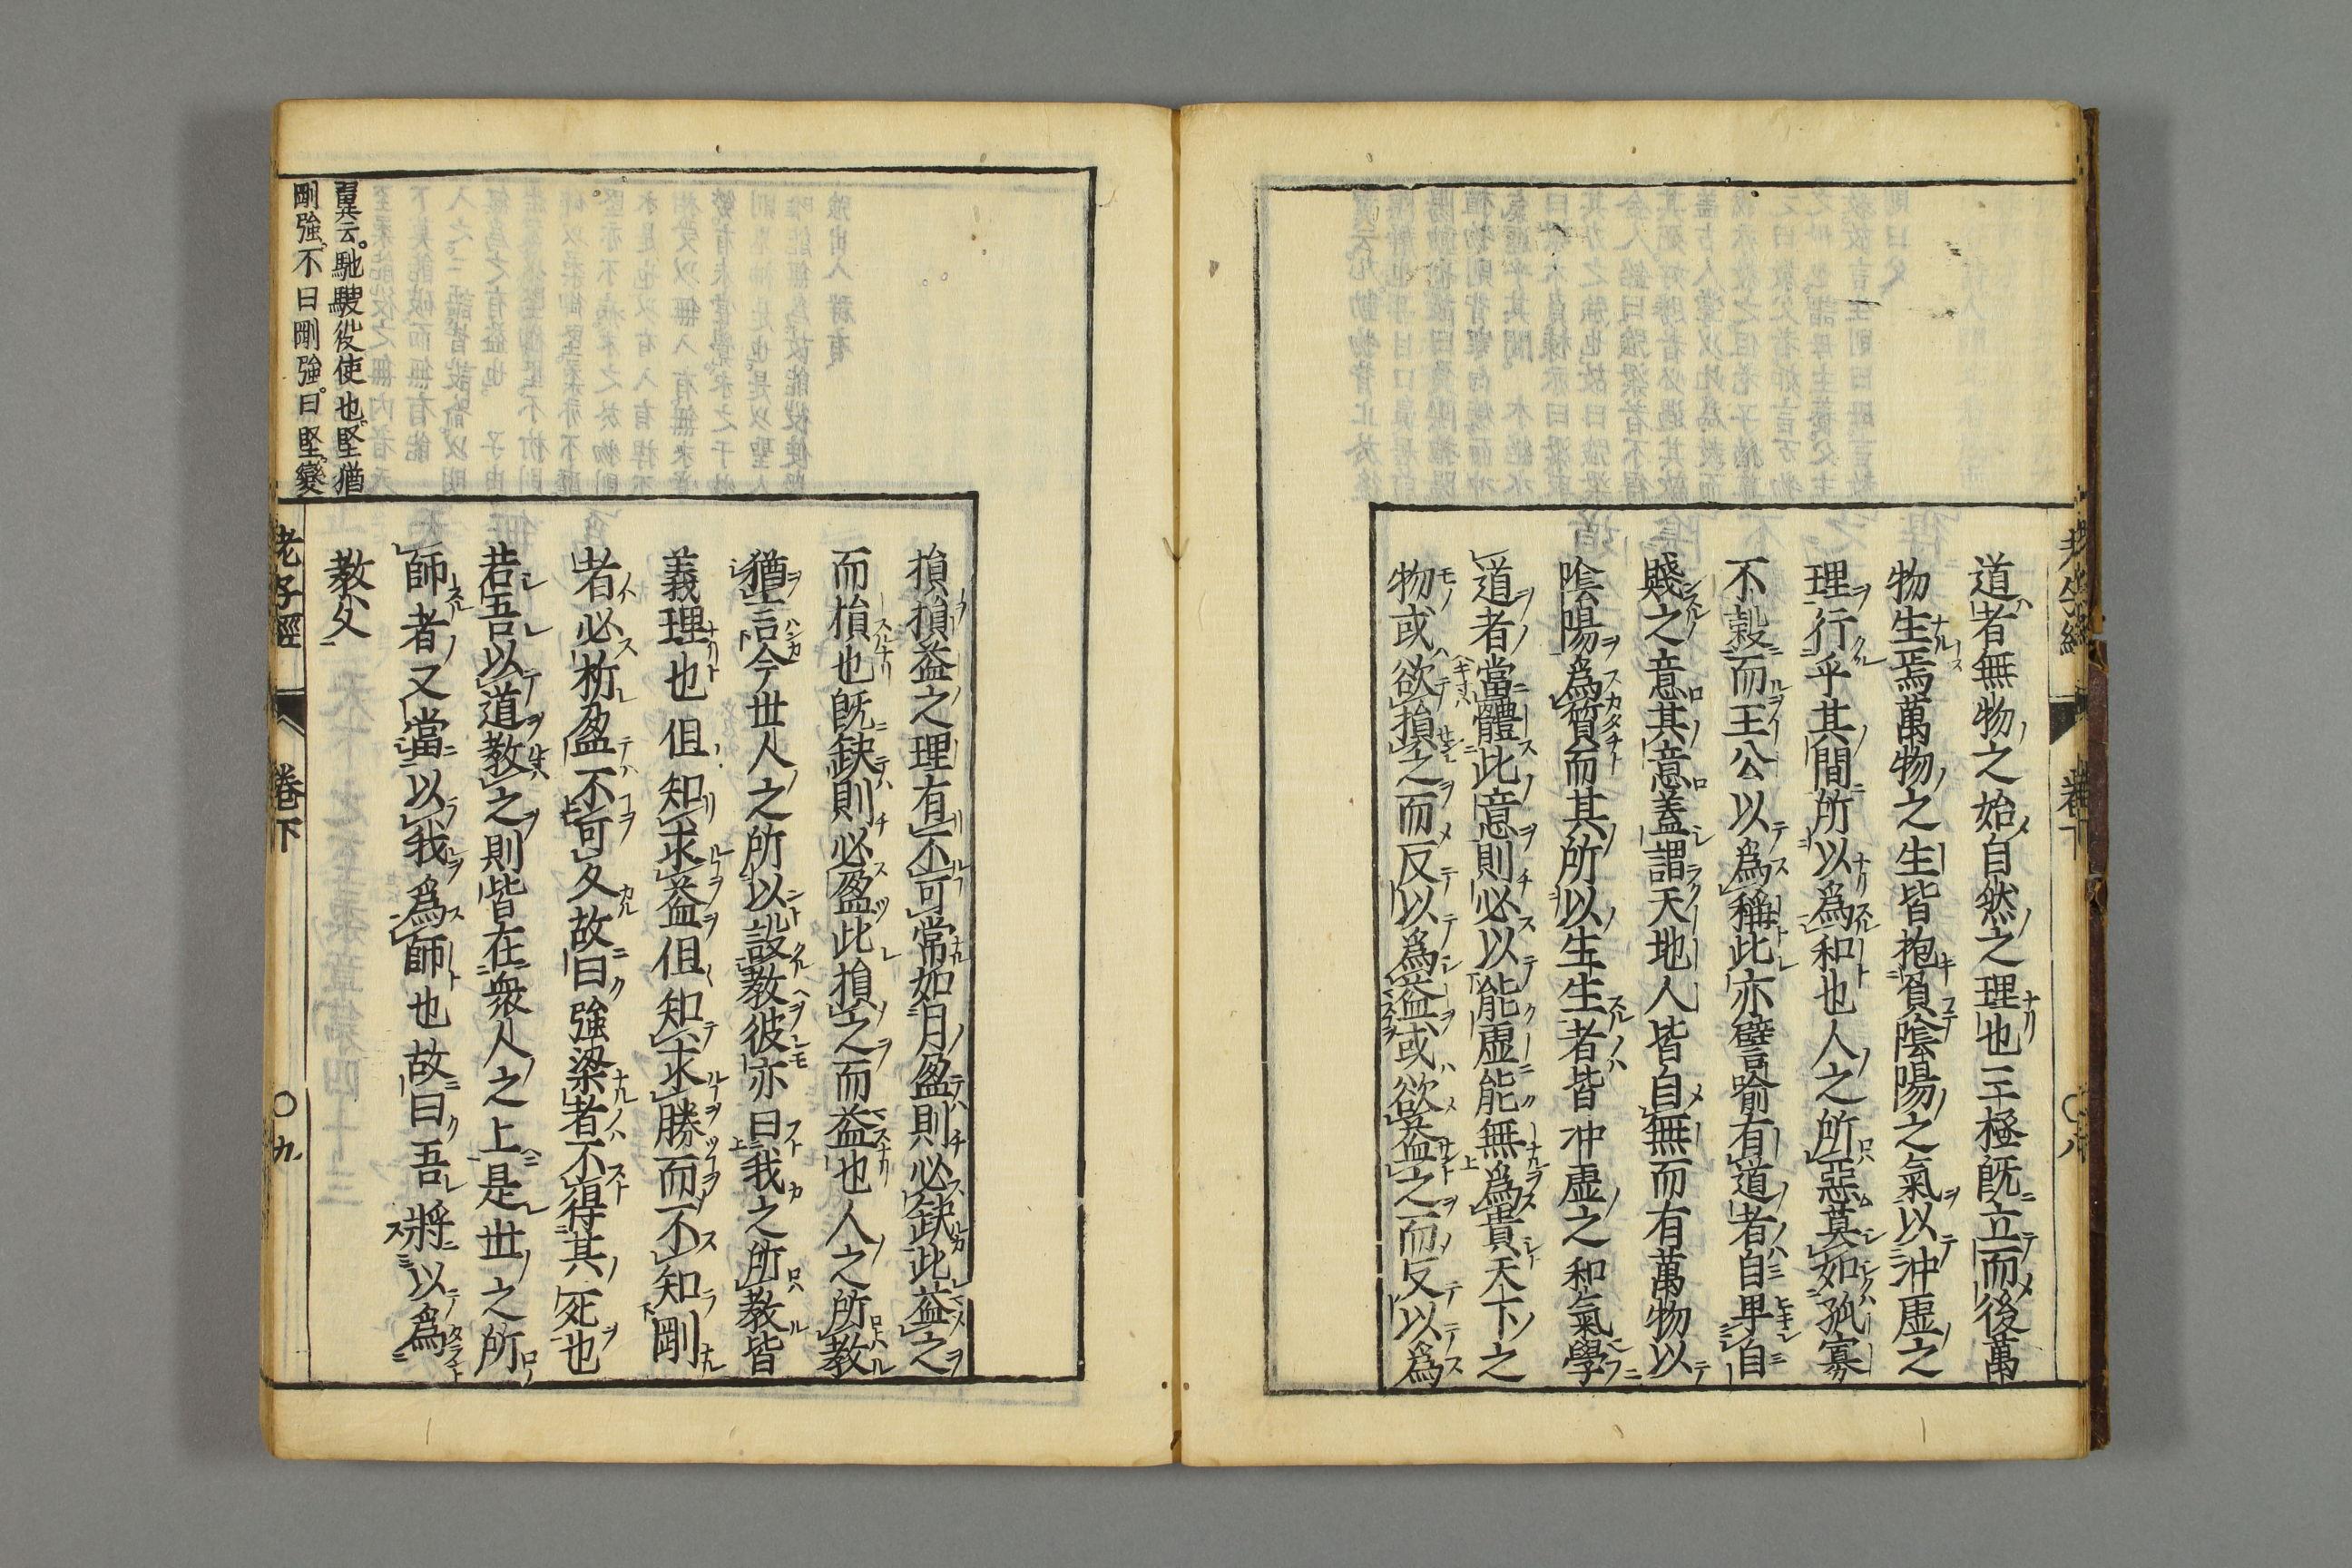 道者無物之始自然之理也三極既立而後萬
物生焉萬物之生皆抱負陰陽之氣以沖虛之
理行乎其間所以為和也人之所惡莫如孤寡
不穀而王公以為稱此亦譬喻有道者自卑自
賤之意其意蓋謂天地人皆自無而有萬物以
陰陽為質而其所以生生者皆沖虛之和氣學
道者當體此意則必以能虛能無為貴天下之
物或欲損之而反以為益或欲益之而反以為
損損益之理有不可常如月盈則必缺此益之
而損也既缺則必盈此損之而益也人之所教
猶言今世人之所以設教彼亦曰我之所教皆
義理也但知求益但知求勝而不知剛
者必折盈不可久故曰強梁者不得其死也
若吾以道教之則皆在衆人之上是世之所
師者又當以我為師也故曰吾將以為
教父
翼云。馳騁役使也。堅猶
剛強。不曰剛強。曰堅。變
老子經 卷下 〇九
卷下 〇八